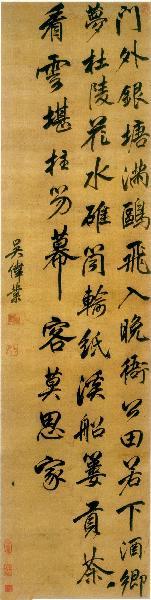 門外銀塘滿鷗飛入晚衙公田若下酒鄉
夢杜陵花水碓筒輪紙溪船簍貢茶
看雲堪拄笏幕容莫思家
吳偉業